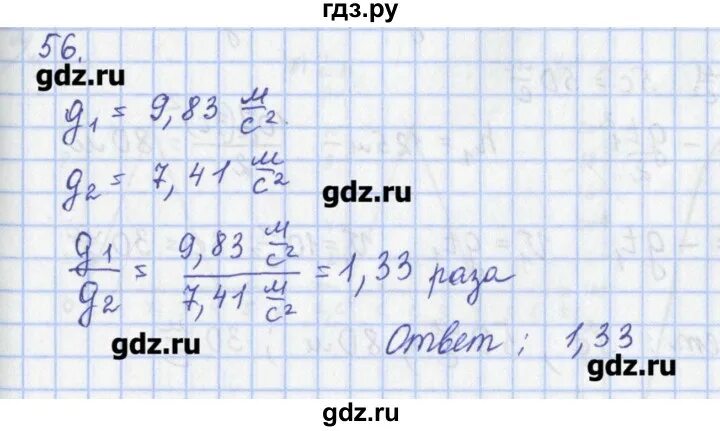 гдз.ру
56.
gdz.ru
g₁ = 9,83 м/с².
g₂ = 7,41 м/с²
gdz.ru
g₁/g₂ = 9,83 м/с² / 7,41 м/с² = 1,33 раза
gdz.ru
Ответ; 1,33
gdz.ru
gdz.ru